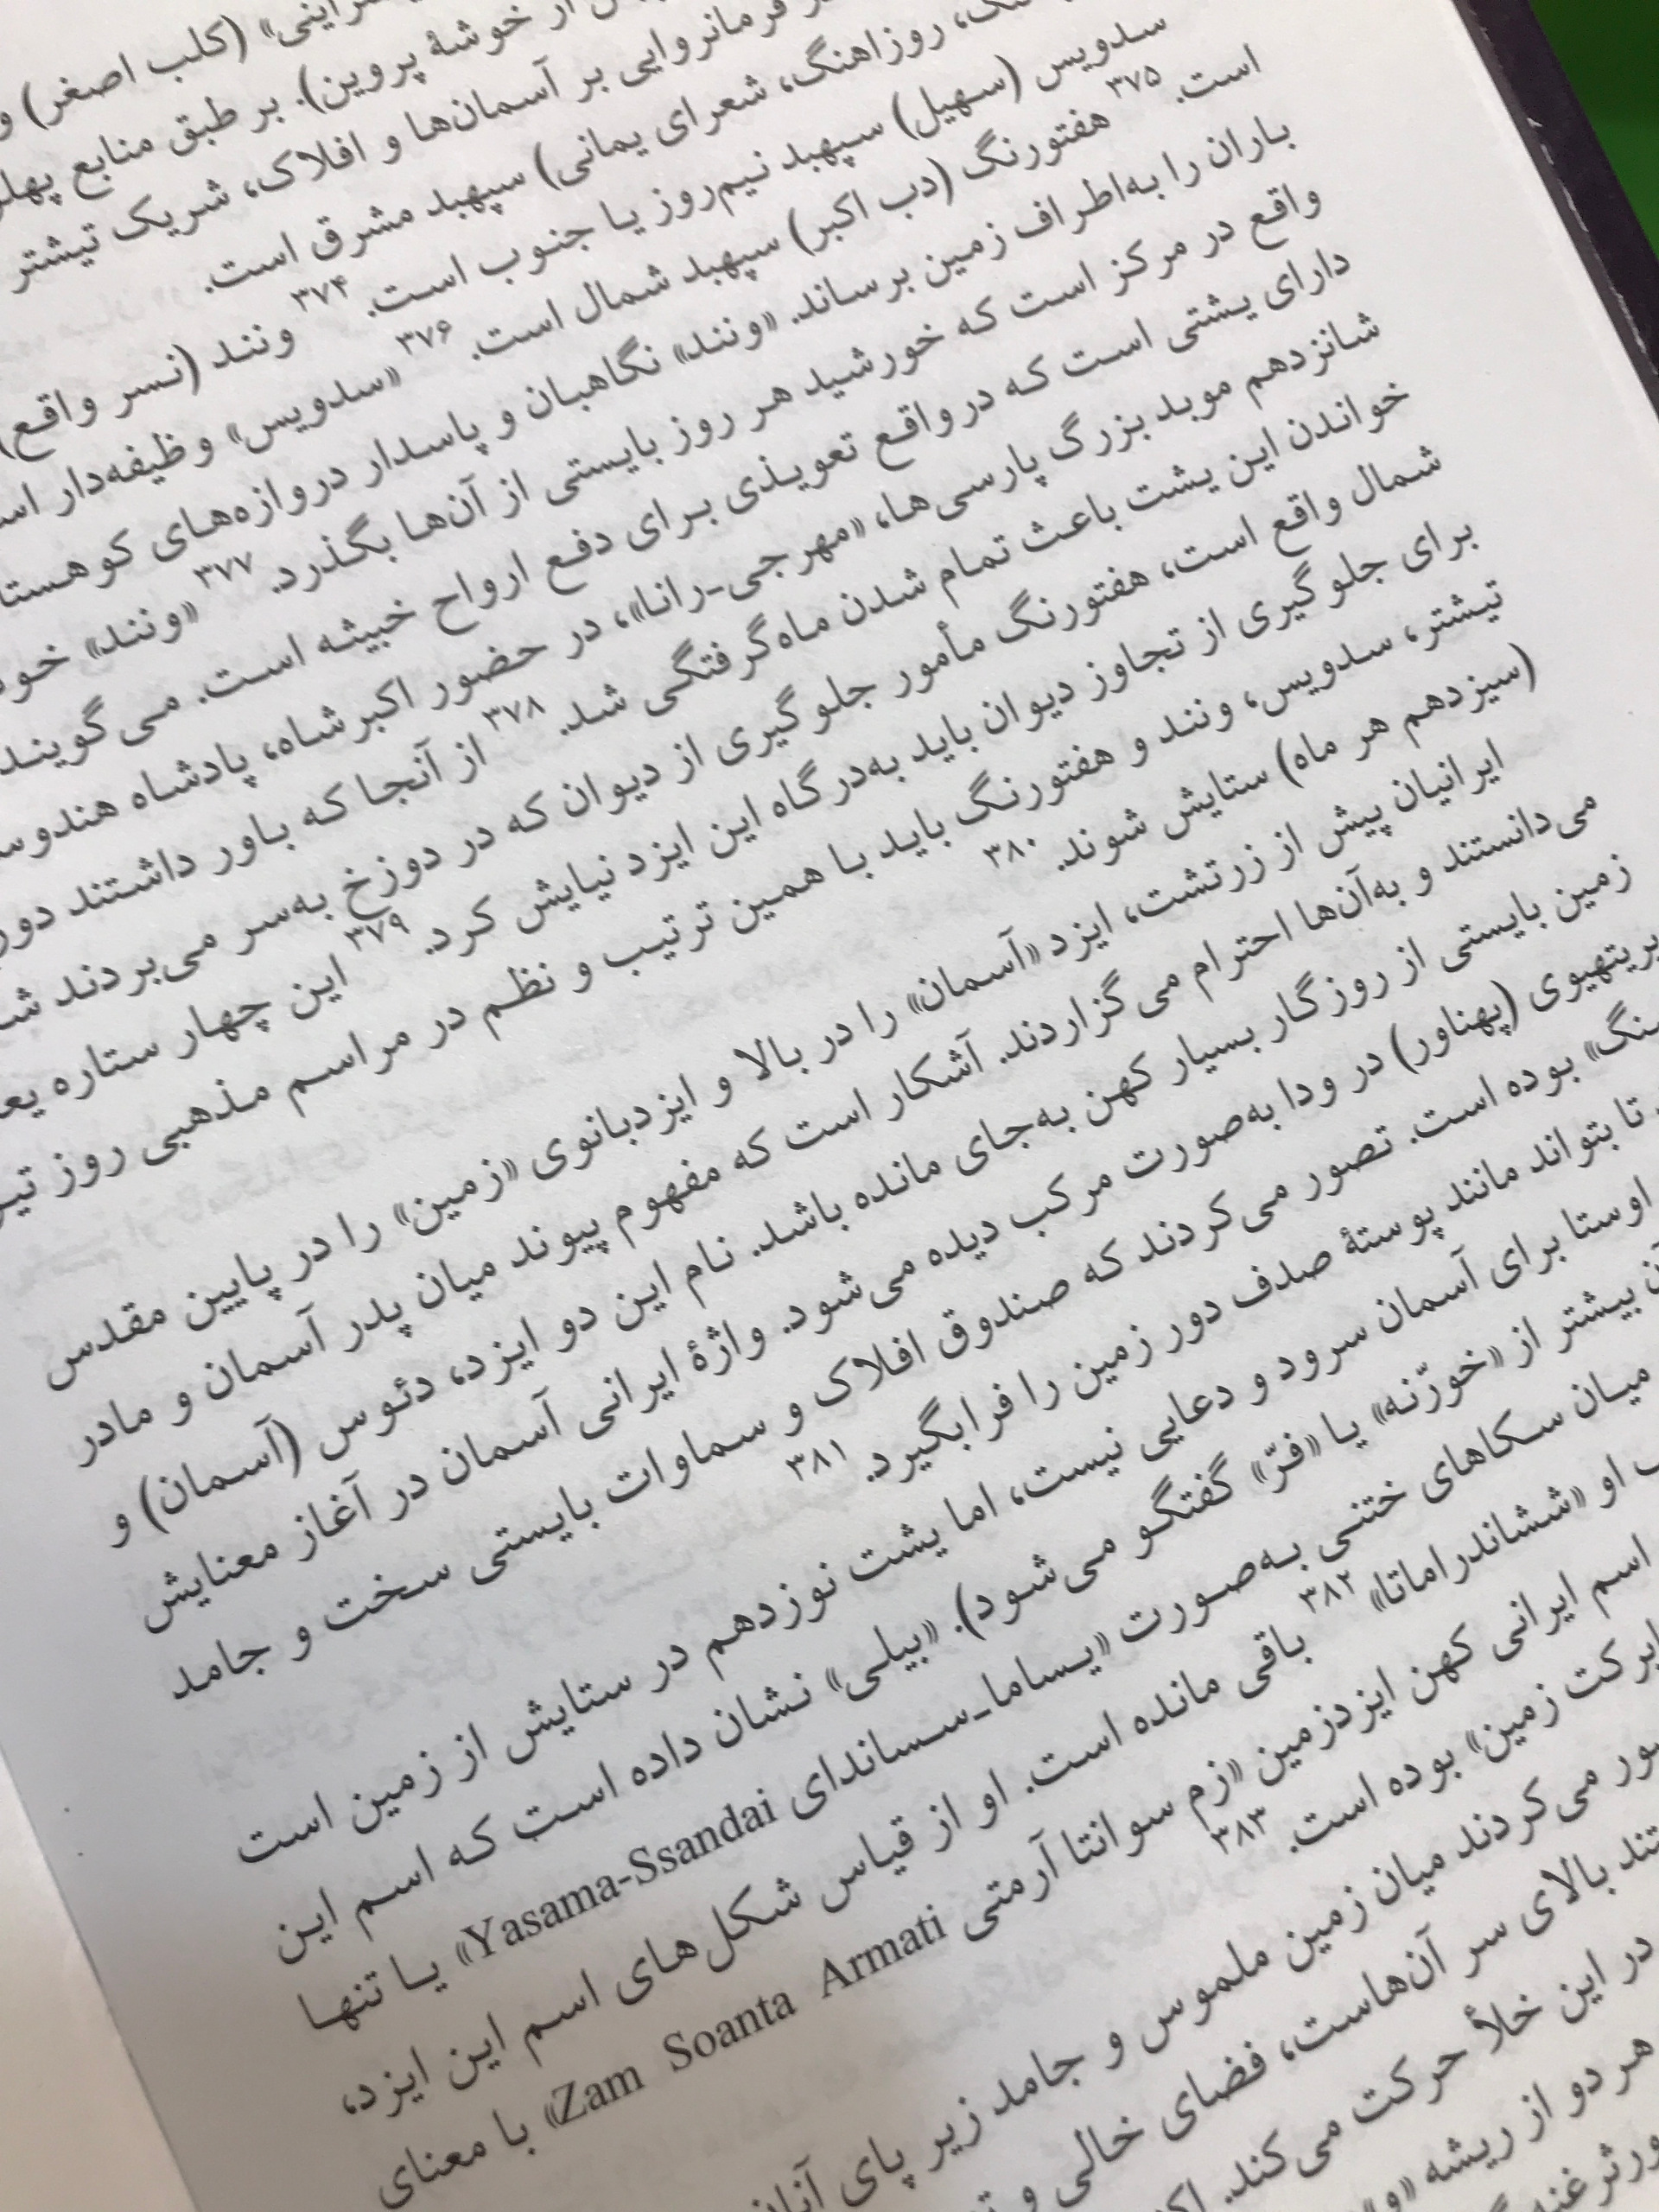 (کلب اصغر) و
از خوشهٔ پروین). بر طبق منابع
فرمانروایی بر آسمان‌ها و افلاک، شریک تیشتر
روزاهنگ، شعرای یمانی) سپهبد مشرق است.
سدویس (سهیل) سپهبد نیم‌روز یا جنوب است.۳۷۴ ونند (نسر واقع)
است.۳۷۵ هفتورنگ (دب اکبر) سپهبد شمال است.۳۷۶ «سدویس» وظیفه‌دار
باران را به‌اطراف زمین برساند. «ونند» نگاهبان و پاسدار دروازه‌های
واقع در مرکز است که خورشید هر روز بایستی از آن‌ها بگذرد.۳۷۷ «ونند»
دارای یشتی است که درواقع تعویذی برای دفع ارواح خبیثه است. می‌گویند
شانزدهم موبد بزرگ پارسی‌ها، «مهرجی-رانا»، در حضور اکبرشاه، پادشاه
خواندن این یشت باعث تمام شدن ماه‌گرفتگی شد.۳۷۸ از آنجا که باور داشتند
شمال واقع است، هفتورنگ مأمور جلوگیری از دیوان که در دوزخ به‌سر می‌بردند
برای جلوگیری از تجاوز دیوان باید به‌درگاه این ایزد نیایش کرد.۳۷۹ این چهار ستاره
تیشتر، سدویس، ونند و هفتورنگ باید با همین ترتیب و نظم در مراسم مذهبی روز
(سیزدهم هر ماه) ستایش شوند.۳۸۰
ایرانیان پیش از زرتشت، ایزد «آسمان» را در بالا و ایزدبانوی «زمین» را در پایین مقدس
می‌دانستند و به‌آن‌ها احترام می‌گزاردند. آشکار است که مفهوم پیوند میان پدر آسمان و مادر
زمین بایستی از روزگار بسیار کهن به‌جای مانده باشد. نام این دو ایزد، دئوس (آسمان) و
پریتهیوی (پهناور) در ودا به‌صورت مرکب دیده می‌شود. واژهٔ ایرانی آسمان در آغاز معنایش
سنگ» بوده است. تصور می‌کردند که صندوق افلاک و سماوات بایستی سخت و جامد
تا بتواند مانند پوستهٔ صدف دور زمین را فرابگیرد.۳۸۱
اوستا برای آسمان سرود و دعایی نیست، اما یشت نوزدهم در ستایش از زمین است
بیشتر از «خورّنه» یا «فرّ» گفتگو می‌شود). «بیلی» نشان داده است که اسم این
میان سکاهای ختنی به‌صورت «یساما-سساندای Yasama-Ssandai» یا تنها
او «ششاندراماتا»۳۸۲ باقی مانده است. او از قیاس شکل‌های اسم این ایزد،
اسم ایرانی کهن ایزدزمین «زم سوانتا آرمتی Zam Soanta Armati» با معنای
برکت زمین» بوده است.۳۸۳
می‌کردند میان زمین ملموس و جامد زیر پای
بالای سر آن‌هاست، فضای خالی و
در این خلأ حرکت می‌کند.
هر دو از ریشه